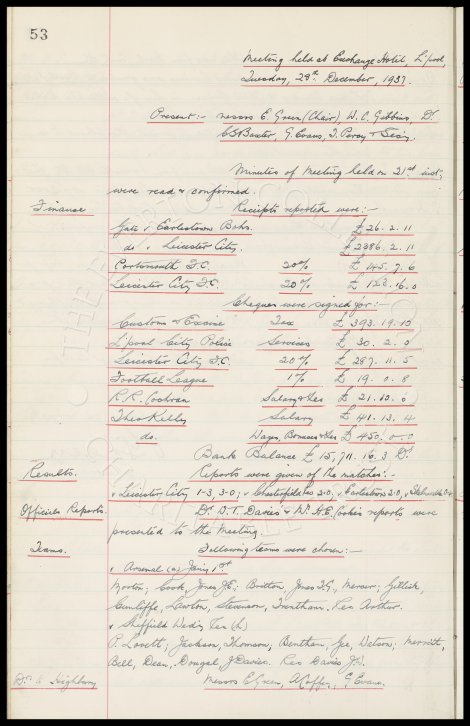 53
Meeting held at Exchange Hotel, L'pool,
Tuesday, 28th December, 1937.
Present:- Messrs E. Green (Chair), W.C. Gibbins, Dr
C.S. Baxter, G. Evans, T. Percy & Secy.
Minutes of Meeting held on 21st inst;
were read & confirmed.
Finance Receipts reported were:-
Gate v Earlestown Bohs. £26. 2. 11
do. v Leicester City. £2386. 2. 11
Portsmouth F.C. 20% £145. 7. 6
Leicester City F.C. 20% £122. 16. 0
Cheques were signed for:-
Customs & Excise Tax £393. 19. 10
L'pool City Police Services £30. 2. 0
Leicester City F.C. 20% £287. 11. 5
Football League 1% £19. 0. 8
R.R. Cochran Salary & Les £21. 10. 0
Theo Kelly Salary £41. 13. 4
do. Wages, Bonuses &Les £450. 0. 0
Bank Balance £15,711. 16. 3 Dr
Results. Reports were given of the matches:-
v Leicester City 1-3, 3-0; v Chesterfield Res 2-0, v Earlestown 2-0,
Officials Reports Dr. D.T. Davies & Mr H.E. Cooke's reports were
presented to the Meeting.
Teams. Following teams were chosen:-
v Arsenal (a) Jany 1st
Morton; Cook, Jones J.E; Britton, Jones T.G, Mercer; Gillick,
Cunliffe, Lawton, Stevenson, Trentham. Res Arthur.
v Sheffield Wedy Res (h)
P. Lovett; Jackson, Thomson, Bentham, Gee, Watson; Merritt,
Bell, Dean, Dougal, J. Davies. Res Davies J.W.
D's to Highbury Messrs E. Green, A. Coffey, G. Evans.